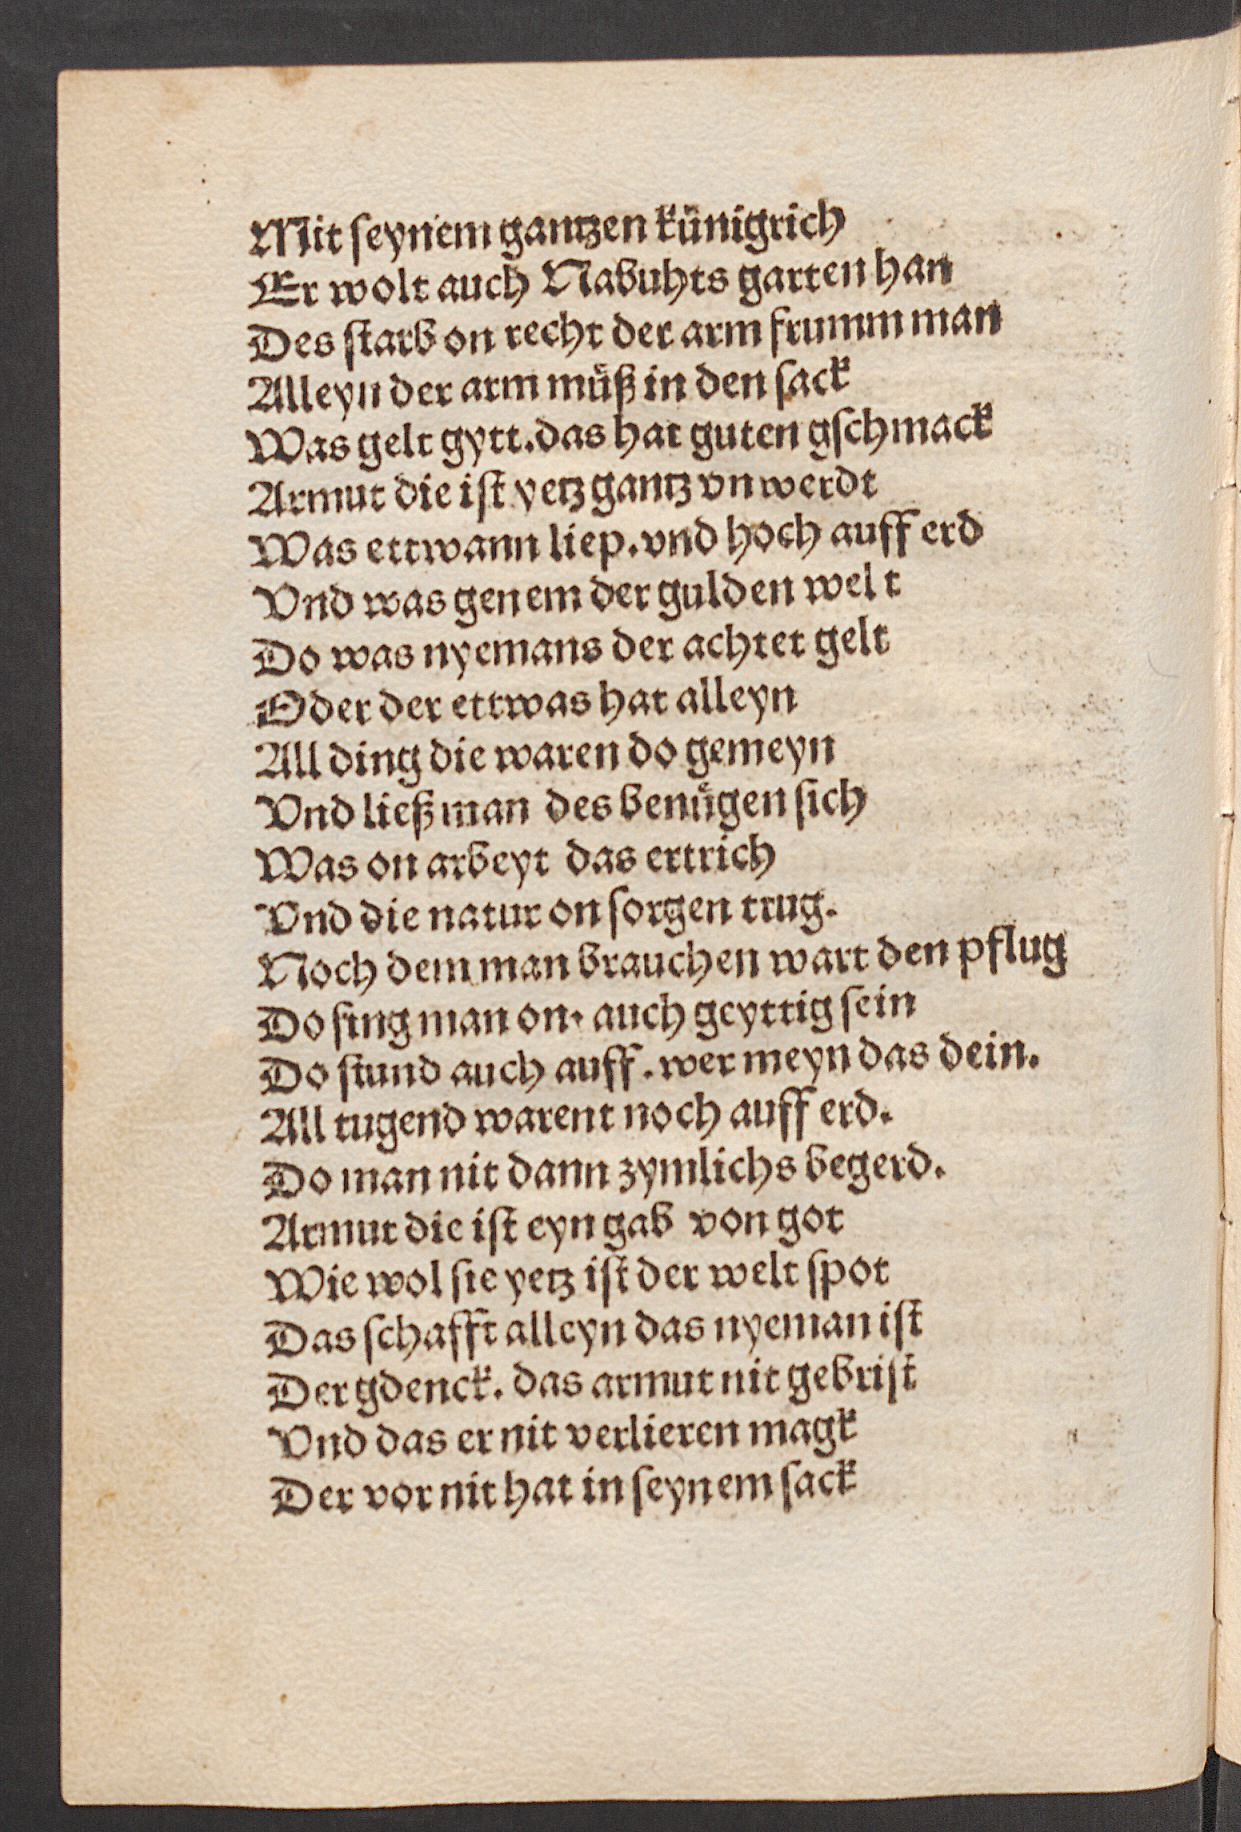 Mit seynem gantzen künigrich
Er wolt auch Nabuhts garten han
Des starb on recht der arm frumm man
Alleyn der arm müß in den sack
Was gelt gytt. das hat guten gschmack
Armut die ist yetz gantz vnwerdt
Was ettwann liep. vnd hoch auff erd
Vnd was genem der gulden welt
Do was nyemans der achtet gelt
Oder der ettwas hat alleyn
All ding die waren do gemeyn
Vnd ließ man des benuͤgen sich
Was on arbeyt das ertrich
Vnd die natur on sorgen trug.
Noch dem man brauchen wart den pflug
Do fing man on. auch geyttig sein
Do stund auch auff. wer meyn das dein.
All tugend warent noch auff erd.
Do man nit dann zymlichs begerd.
Armut die ist eyn gab von got
Wie wol sie yetz ist der welt spot
Das schafft alleyn das nyeman ist
Der gdenck. das armut nit gebrist
Vnd das er nit verlieren magk
Der vor nit hat in seynem sack